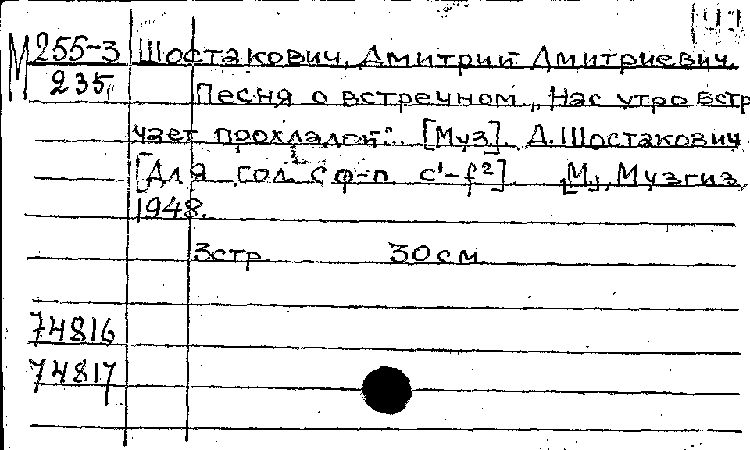 М 255-3 Шостакович, Дмитрий Дмитриевич.
235 Песня о встречном „Нас утро встре
чает прохладой". [Муз]. Д. Шостакович
[Для гол. с ф-п. c¹-f²]. [М], Музгиз,
1948.
3 стр. 30 см.
74816
74817